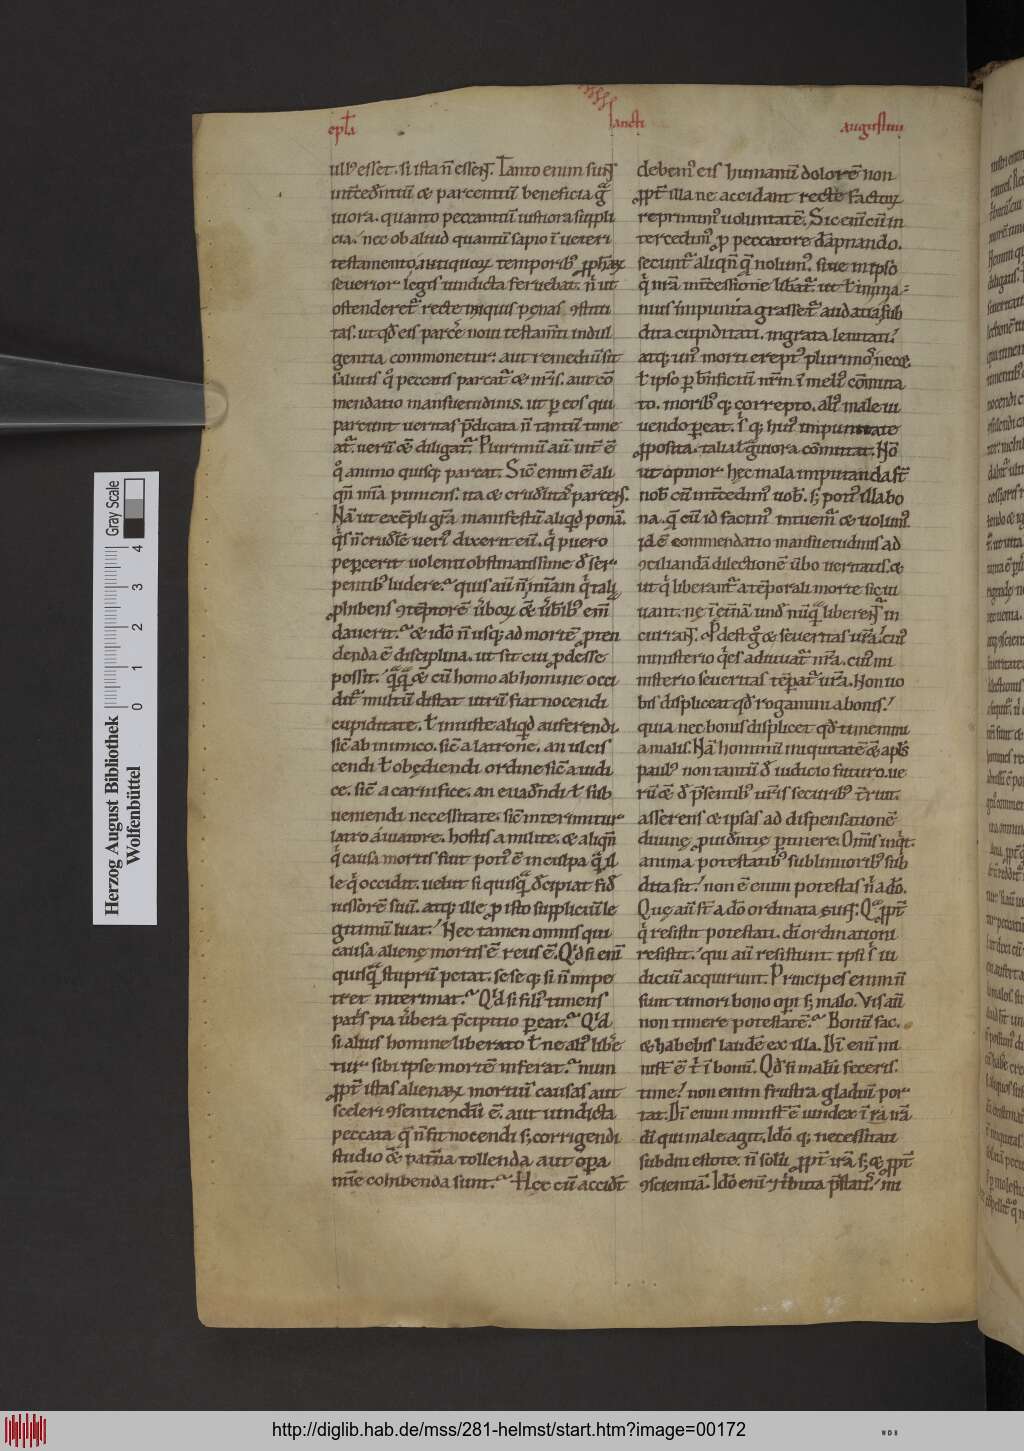 epl̄a
sancti
augustini
ull᷒ esset. si ista n̄ essent. Tanto enim sunt
int̄cedentiū & parcentiū beneficia g̃
tiora. quanto peccantiū iustiora suppli
cia. nec ob aliud quantū sapio ī ueteri
testamento antiquoꝝ temporibꝰ ꝓphetaꝝ
seuerior legis uindicta feruebat. n̄ ut
ostenderet᷑ recte iniquis penas ꝯstitu
tas. ut qd̄ eis parcere noui testam̄ti indul
gentia commonetur. aut remediū sit
salutis qͦ peccans parcat᷑ & nr̄is. aut cō
mendatio mansuetudinis. ut ꝑ eos qui
parcunt ueritas p̄dicata n̄ tantū time
at᷑. uerū & diligat᷑. Plurimū aū int̄ ē
qͦ animo quisq; parcat. Sic̄ enim ē ali
qn̄ mīa puniens. ita & crudelitas parcens.
Nā ut exēpli gr̄a manifestū aliqd ponā.
q̇s n̄ crudelē ueriꝰ dixerit eū. q̇ puero
pepercerit uolenti obstinatissime de ser
pentibꝰ ludere. quis aū n̄
ꝓhibens ꝯtēptorē ūboꝝ & ūberibꝰ em̄
dauerit. & ideo n̄ usq; ad mortē ꝓten
denda ē disciplina. ut sit cui ꝓdesse
possit. & cū homo ab homine occi
dit᷑ multū distat utrū fiat nocendi
cupiditate. ł iniuste aliqd auferendi
sic̄ ab inimico. sic̄ a latrone. an ulcis
cendi ł obediendi ordine sic̄ a iudi
ce. sic̄ a carnifice. an euadendi ł sub
ueniendi necessitate. sic̄ interimitur
latro a uiatore. hostis a milite. & aliqn̄
q̇ causa mortis fuit potiꝰ ē in culpa q̄ il
le q̇ occidit. uelut si quisq̄ decipiat fide
iussorē suū. atq; ille ꝓ isto suppliciū le
gitimū luat. Nec tamen omnis qui
causa aliene mortis ē reus ē. Qd̄ si enī
quisq̄ stuprū petat. sese q; si n̄ impe
tret interimat. Qd̄ si filiꝰ timens
patris pia ūbera p̄cipitio pereat. Qd̄
si aliꝰ homine liberato ł ne aliꝰ libe
tur sibi ipse mortē inferat. num
ꝓpt̄ istas alienaꝝ mortiū causas aut
sceleri ꝯsentiendū ē. aut uindicta
peccata q̄ n̄ fit nocendi s; corrigendi
studio & pat̄na tollenda aut opera
mīe cohibenda sunt. Hec cū accidunt
debemꝰ eis humanū dolorē non
ꝓpt̄ illa ne accidant recte factoꝝ
reprimimꝰ uoluntatē. Sic enī cū in
tercedimꝰ ꝓ peccatore dāpnando.
secunt᷑ aliqn̄ q̄ nolumꝰ. siue in ipso
q̇ nr̄a int̄cessione liberat᷑. ut ł inma=
nius impunita grasset᷑ audatia sub
dita cupiditati. ingrata lenitati.
atq; unꝰ morti ereptꝰ plurimos necet.
ł ipso ꝑ bn̄ficiū nr̄m ī meliꝰ cōmuta
to. moribꝰ q; correpto. aliꝰ male ui
uendo pereat. s; q; huiꝰ impunitate
ꝓposita. talia ł grauiora cōmittat. Nō
ut opinor hec mala imputanda st̄
nob̄ cū int̄cedimꝰ uob̄. s; potiꝰ illa bo
na. q̄ cū id facimꝰ intuemur & uolumꝰ.
id ē commendatio mansuetudinis ad
ꝯciliandā dilectionē ūbo ueritatis. &
ut q̇ liberant᷑ a tēporali morte sic ui
uant. ne ī et̄nā unde nūq̄ liberent᷑ in
currant. Prodest g̊ & seueritas ur̄a. cuiꝰ
ministerio q̇es adiuuat᷑ nr̄a. cuiꝰ mi
nisterio seueritas tēperat᷑ ur̄a. Non uo
bis displiceat qd̄ rogamini a bonis.
quia nec bonis displicet qd̄ timemini
a malis. Nā hominū iniquitatē & ap̄ls
paulꝰ non tantū de iudicio futuro. ue
rū & de p̄sentibꝰ ur̄is securibꝰ t̄ruit.
asserens & ipsas ad dispensationē
diuine ꝓuidentie ꝑtinere. Om̄is inquit.
anima potestatibꝰ sublimioribꝰ sub
dita sit. non ē enim potestas n̄ a dō.
Que aū st̄ a dō ordinata sunt. Q̄ꝓpt̄
q̇ resistit potestati. dī ordinationi
resistit. qui aū resistunt. ipsi s; iu
diciū acquirunt. Principes enim n̄
sunt timori bono opi s; malo. Vis aū
non timere potestatē. Bonū fac.
& habebis laudē ex illa. Dī enī mi
nist̄ ē t̄ ī bonū. Qd̄ si malū feceris.
time. non enim frustra gladiū por
tat. Dī enim minist̄ ē uindex ī irā
dī qui male agit. Ideo q; necessitati
subditi estote. n̄ solū ꝓpt̄ irā s; & ꝓpt̄
ꝯscientiā. Ideo enī & tributa p̄statis. mi
Herzog August Bibliothek
Wolfenbüttel
0 1 2 3 4
Gray Scale
http://diglib.hab.de/mss/281-helmst/start.htm?image=00172
WDB